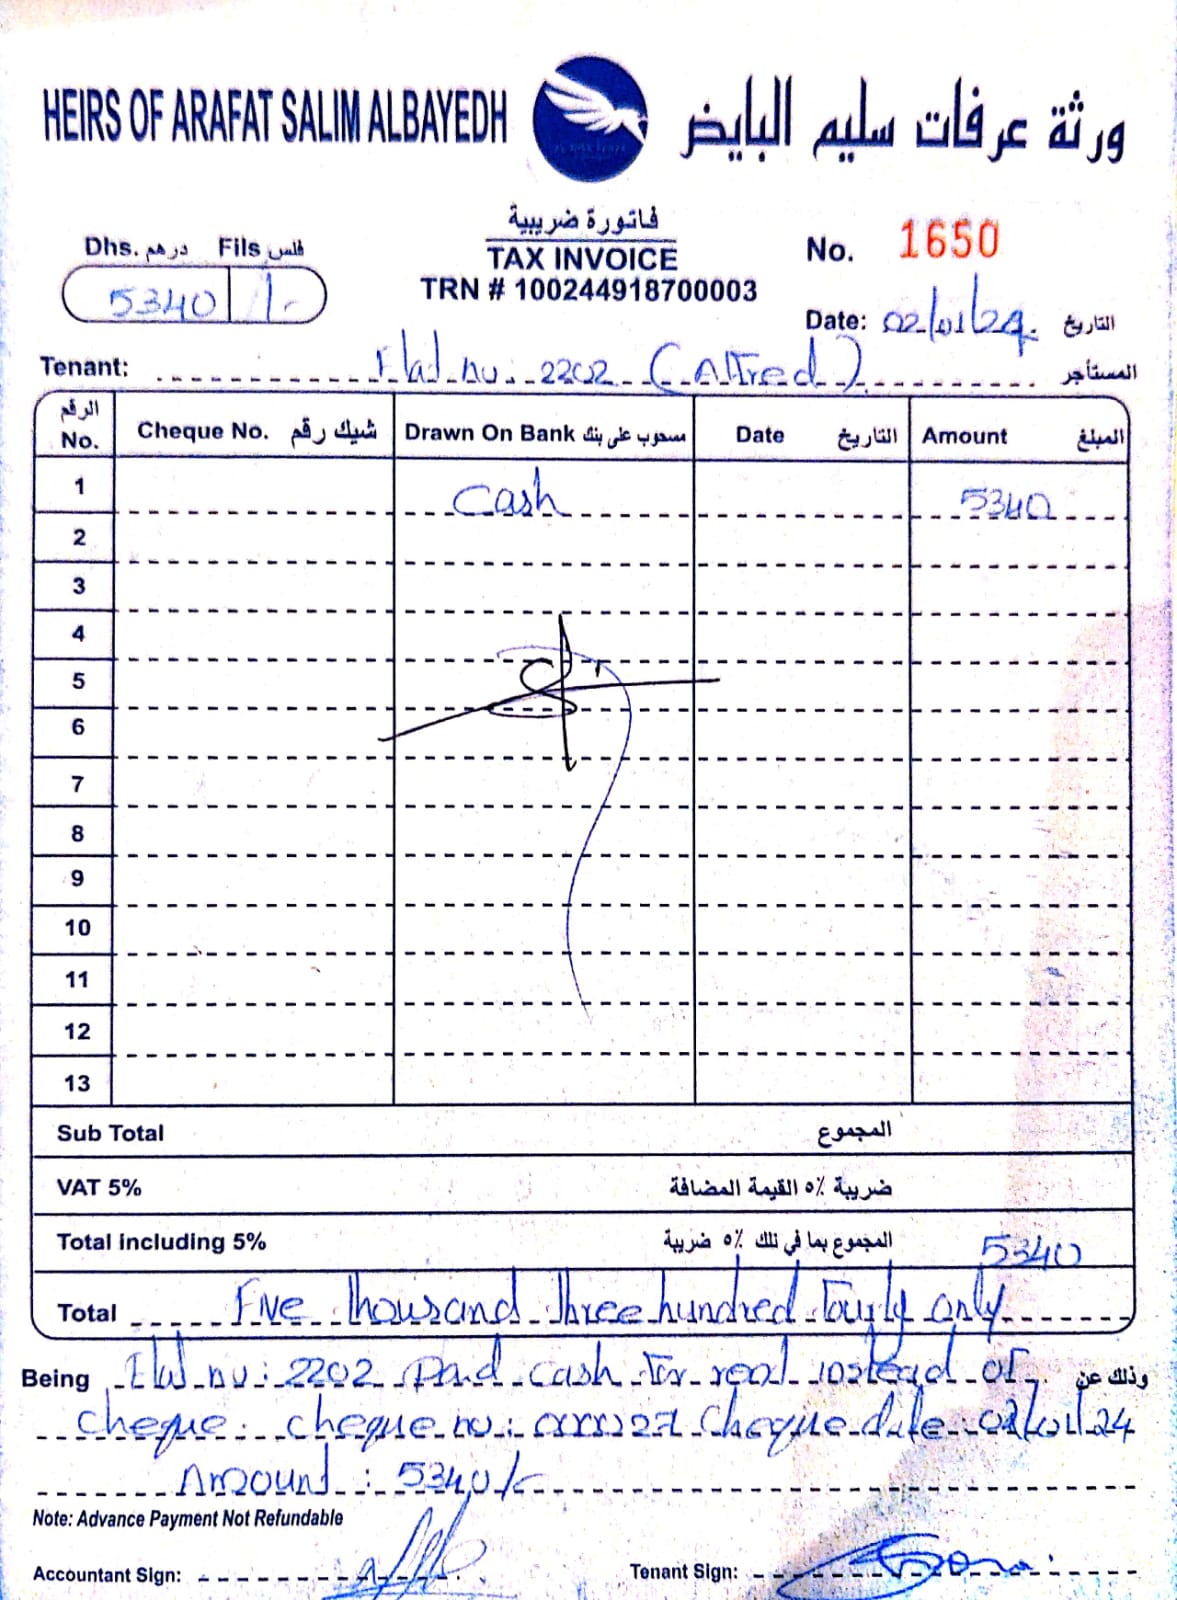 HEIRS OF ARAFAT SALIM ALBAYEDH ورثة عرفات سليم البايض
فاتورة ضريبية
TAX INVOICE
TRN # 100244918700003
Dhs. درهم Fils فلس
5340 /-
No. 1650
Date: 02/01/24. التاريخ
Tenant: Flat no: 2202 (Alfred) المستأجر
الرقم No. Cheque No. شيك رقم Drawn On Bank مسحوب على بنك Date التاريخ Amount المبلغ
1 Cash 5340
2
3
4
5
6
7
8
9
10
11
12
13
Sub Total المجموع
VAT 5% ضريبة ٥٪ القيمة المضافة
Total including 5% المجموع بما في ذلك ٥٪ ضريبة 5340
Total Five thousand three hundred fourty only
Being Flat no: 2202 Paid cash for rent instead of وذلك عن
cheque. cheque no: 000027 Cheque date: 02/01/24
Amount: 5340/-
Note: Advance Payment Not Refundable
Accountant Sign:
Tenant Sign: